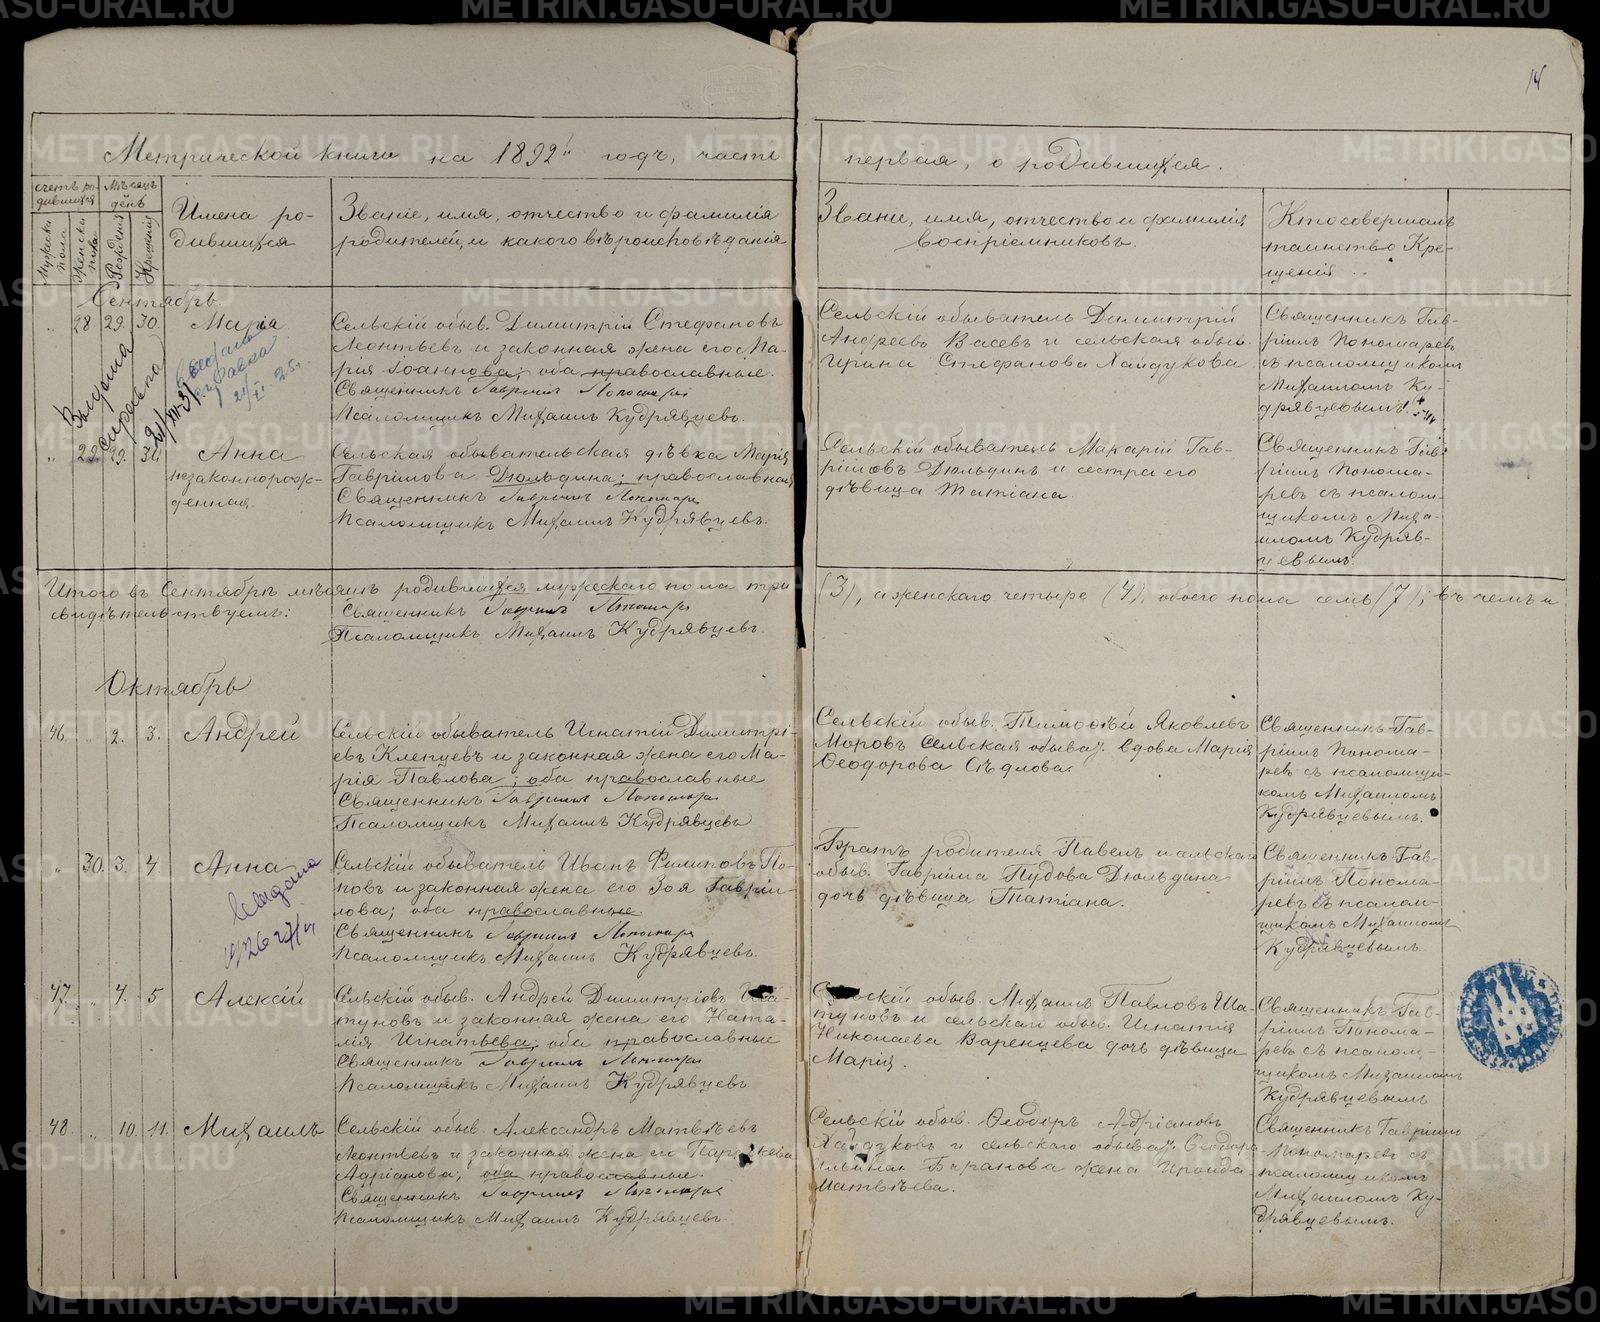 14
Метрической книги на 1892й годъ, часть
первая, о родившихся.
счетъ ро-
дившихся
Мѣсяцъ
день
Мужеска
пола
Женска
пола
Рожденія
Крещенія
Имена ро-
дившихся
Званіе, имя, отчество и фамилія
родителей, и какого вѣроисповѣданія
Званіе, имя, отчество и фамилія
воспріемниковъ.
Кто совершалъ
таинство Кре-
щенія
Сентябрь.
„ 28 29. 30. Марія
Сельскій обыв. Димитрій Стефановъ
Леонтьевъ и законная жена его Ма-
рія Іоаннова; оба православные.
Священникъ Гавріилъ Пономаревъ
Псаломщикъ Михаилъ Кудрявцевъ.
Сельскій обыватель Димитрій
Андреевъ Васевъ и сельская обыв.
Ирина Стефанова Хайдукова
Священникъ Гав-
ріилъ Пономаревъ
съ псаломщикомъ
Михаиломъ Ку-
дрявцевымъ.
Выдана
справка
„ 29. 29. 30. Анна
незаконнорож-
денная.
Сельская обывательская дѣвка Марія
Гаврилова Дюльдина; православная
Священникъ Гавріилъ Пономаревъ
Псаломщикъ Михаилъ Кудрявцевъ.
Сельскій обыватель Макарій Гав-
риловъ Дюльдинъ и сестра его
дѣвица Татіана.
Священникъ Гав-
ріилъ Понома-
ревъ съ псалом-
щикомъ Миха-
иломъ Кудряв-
цевымъ.
Итого въ Сентябрѣ мѣсяцѣ родившихся мужескаго пола три
(3), а женскаго четыре (4), обоего пола семь (7); въ чемъ и
свидѣтельствуемъ:
Священникъ Гавріилъ Пономаревъ
Псаломщикъ Михаилъ Кудрявцевъ.
Октябрь
46. „ 2. 3. Андрей
Сельскій обыватель Игнатій Димитрі-
евъ Клепцевъ и законная жена его Ма-
рія Павлова; оба православные
Священникъ Гавріилъ Пономаревъ
Псаломщикъ Михаилъ Кудрявцевъ
Сельскій обыв. Тимофѣй Яковлевъ
Моровъ Сельская обыват. вдова Марія
Ѳеодорова Сѣдлова.
Священникъ Гав-
ріилъ Понома-
ревъ съ псаломщи-
комъ Михаиломъ
Кудрявцевымъ.
„ 30. 3. 4. Анна
Выдана
1926 27/VI
Сельскій обыватель Иванъ Филиповъ По-
повъ и законная жена его Зоя Гаври-
лова; оба православные
Священникъ Гавріилъ Пономаревъ
Псаломщикъ Михаилъ Кудрявцевъ.
Братъ родителя Павелъ и сельскаго
обыв. Гавріила Пудова Дюльдина
дочь дѣвица Татіана.
Священникъ Гав-
ріилъ Понома-
ревъ съ псалом-
щикомъ Михаиломъ
Кудрявцевымъ.
47. „ 4. 5 Алексій
Сельскій обыв. Андрей Димитріевъ Ша-
туновъ и законная жена его Ната-
лія Игнатьева; оба православные
Священникъ Гавріилъ Пономаревъ
Псаломщикъ Михаилъ Кудрявцевъ
Сельскій обыв. Михаилъ Павловъ Ша-
туновъ и сельскаго обыв. Игнатія
Николаева Варенцева дочь дѣвица
Марія.
Священникъ Гав-
ріилъ Понома-
ревъ съ псалом-
щикомъ Михаиломъ
Кудрявцевымъ
48. „ 10. 11. Михаилъ
Сельскій обыв. Александръ Матвѣевъ
Леонтьевъ и законная жена его Параскева
Адріанова; оба православные.
Священникъ Гавріилъ Пономаревъ
Псаломщикъ Михаилъ Кудрявцевъ.
Сельскій обыв. Ѳеодоръ Адріановъ
Хайдуковъ и сельскаго обыват. Ѳеодора
Баранова жена Ироида
Матвѣева.
Священникъ Гавріилъ
Пономаревъ съ
псаломщикомъ
Михаиломъ Ку-
дрявцевымъ.
METRIKI.GASO-URAL.RU